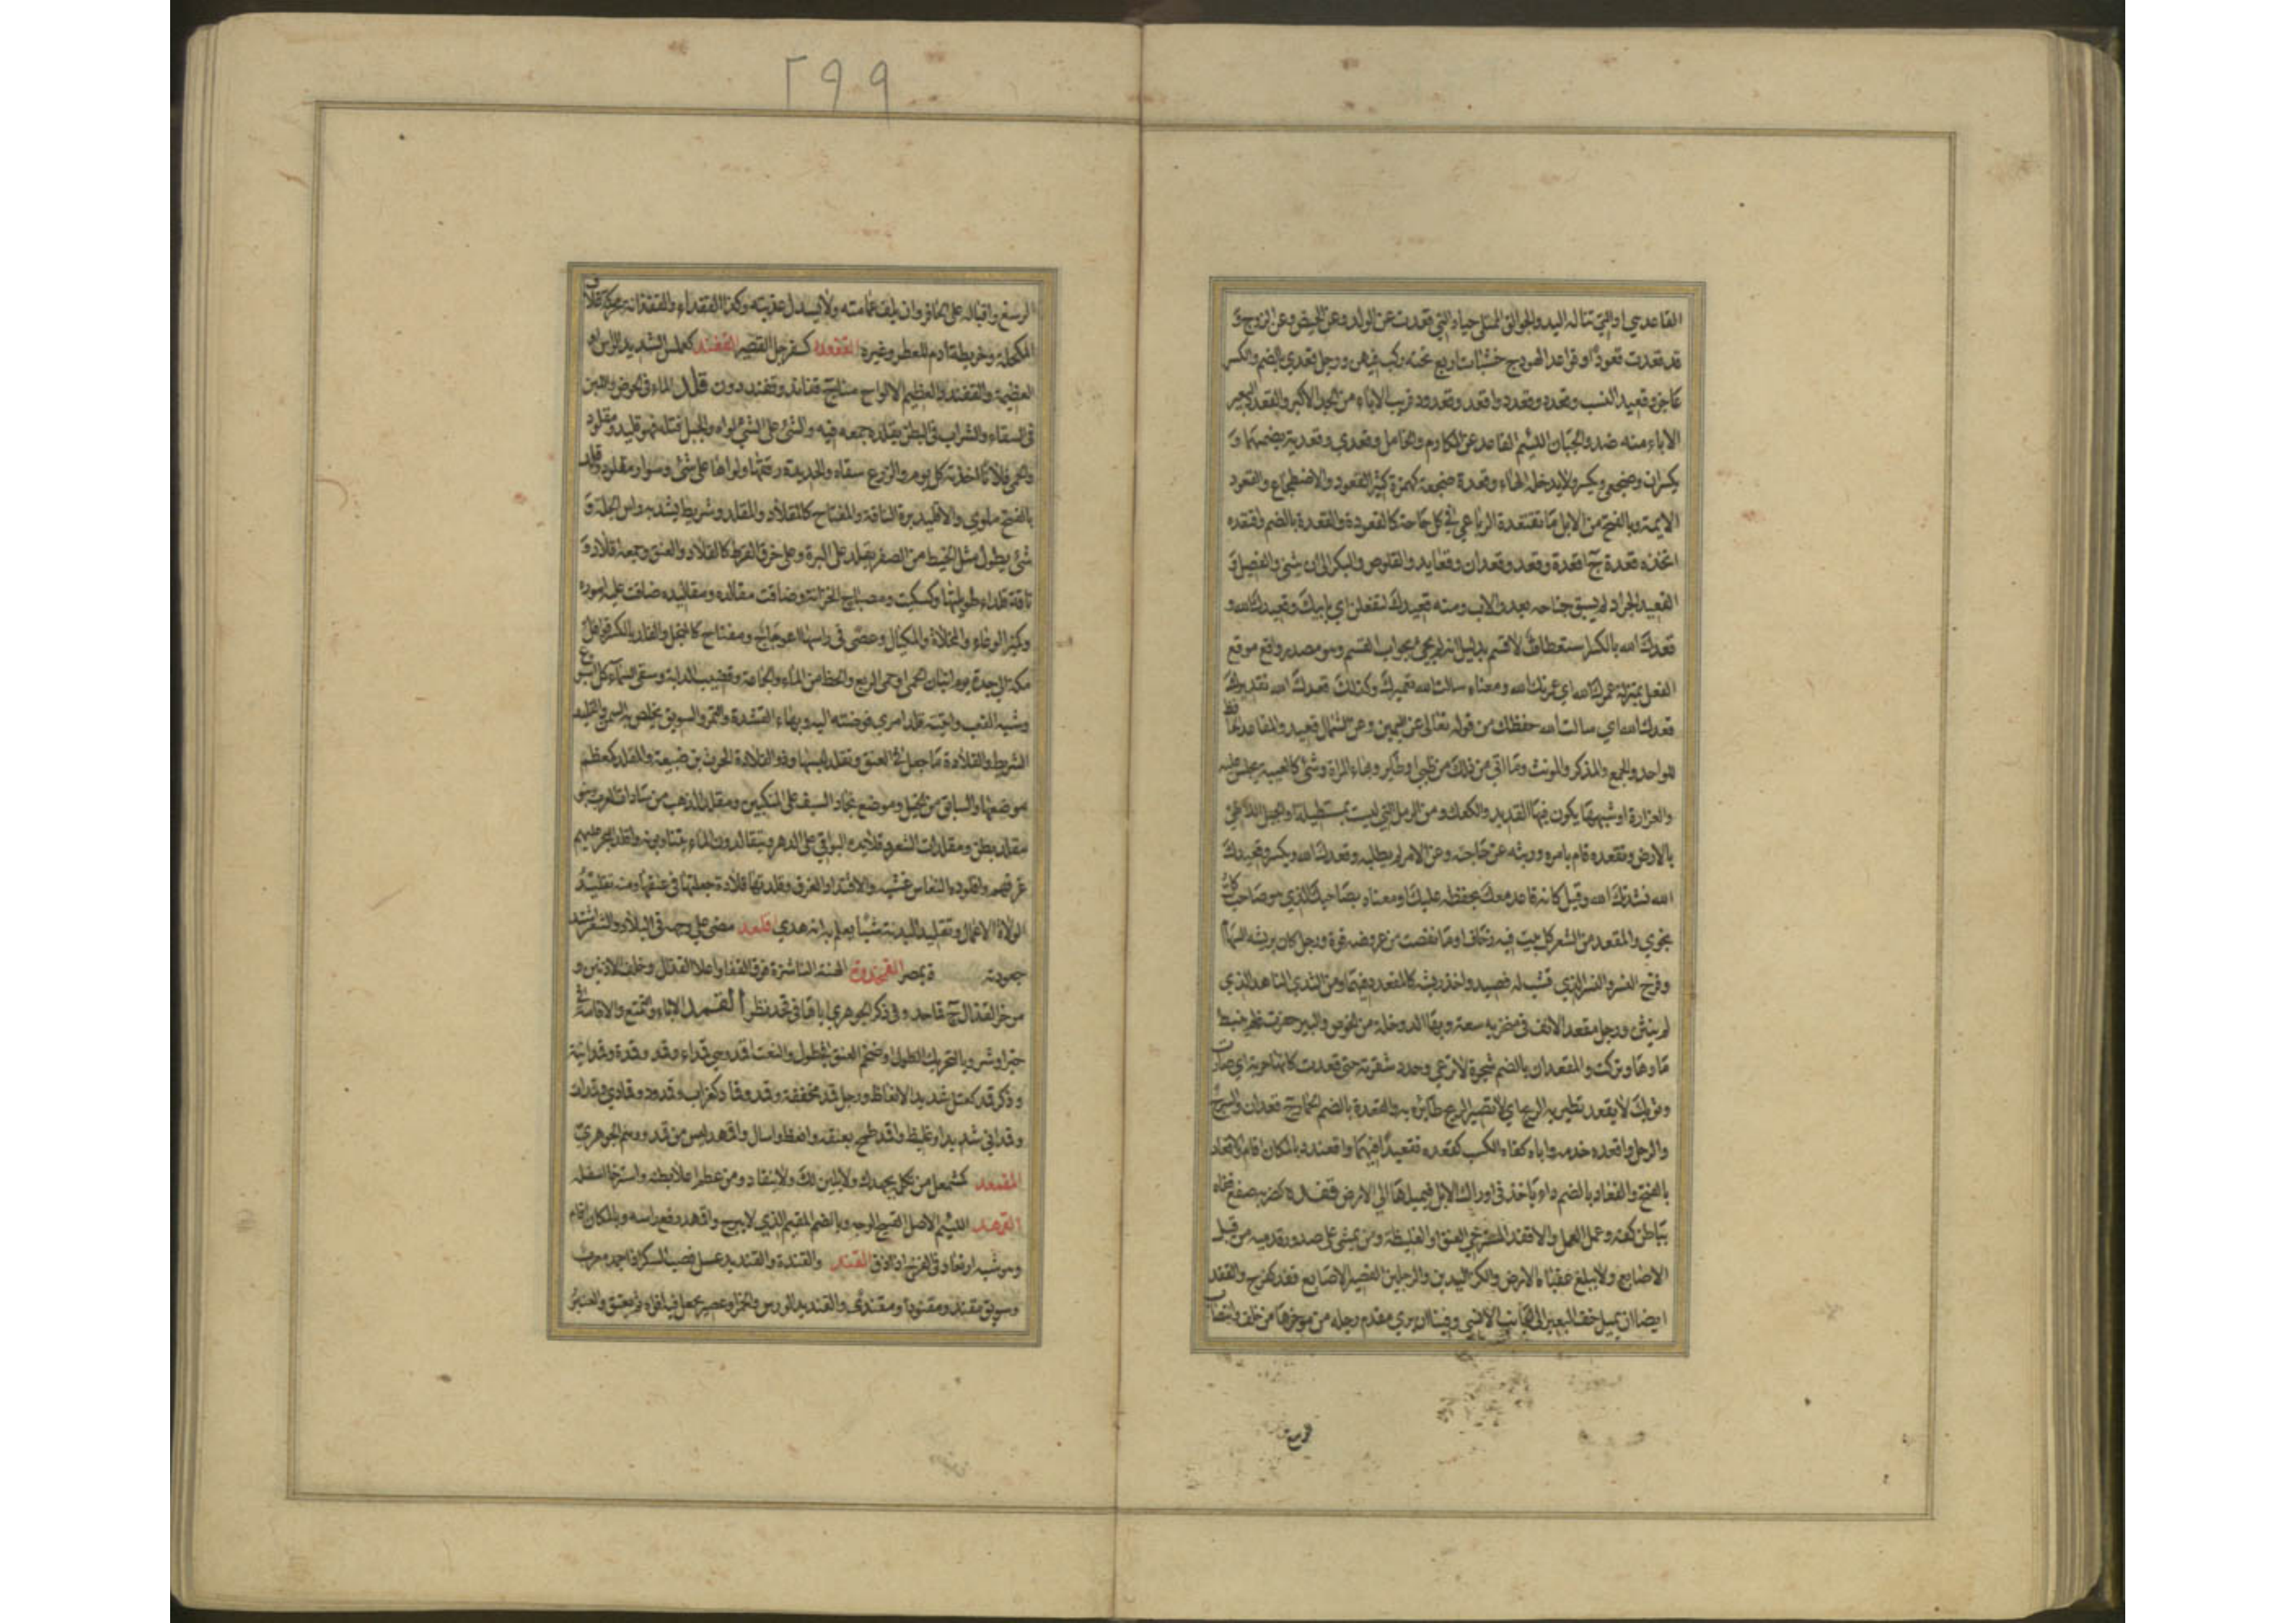 ٢٩٩
القاعد هي او التي تناله اليد والجوالق الممتلئ حبا والتي قعدت عن الولد وعن الحيض وعن الزوج و
قد قعدت قعودا وقواعد الهودج خشبات اربع تحته ركب فيهن ورجل قعدي بالضم والكسر
عاجز وقعيد النسب وقعدد وقعدد واقعد وقعدود قريب الاباء من الجد الاكبر والقعدد البعيد
الاباء منه ضد والجبان اللئيم القاعد عن المكارم والخامل وقعدي وقعدية بضمهما و
يكسران وضجعي ويكسر ولا يدخله الهاء وقعدة ضجعة كهمزة كثير القعود والاضطجاع والقعود
الايمة وبالفتح من الابل ما تقتعده الراعي في كل حاجة كالقعودة والقعدة بالضم واقتعده
اتخذه قعدة ج اقعدة وقعد وقعدان وقعايد والقلوص والبكر الى ان يثني والفصيل و
القعيد الجراد لم يستو جناحه بعد والاب ومنه قعيدك لتفعلن اي بابيك وقعيدك الله و
قعدك الله بالكسر استعطاف لا قسم بدليل انه لم يجئ بجواب القسم وهو مصدر واقع موقع
الفعل بمنزلة عمرك الله اي عمرتك الله ومعناه سالت الله تعميرك وكذلك قعدك الله تقديره
قعدتك الله اي سالت الله حفظك من قوله تعالى عن اليمين وعن الشمال قعيد والمقاعد
للواحد والجمع والمذكر والمونث وما اتى من ذلك من ظبي او طاير وبهاء المراة وشئ كالعيبة يجلس عليه
والغرارة او شبهها يكون فيها القديد والكعك ومن الرمل التي ليست بمستطيلة او الجبل اللاطئ
بالارض وتقعده قام بامره وريثه عن حاجته وعن الامر لم يطلبه وقعدك الله ويكسر وقعيدك
الله نشدتك الله وقيل كانه قاعد معك بحفظه عليك او معناه بصاحبك الذي هو صاحب كل
نجوي والمقعد من الشعر كل بيت فيه زحاف او ما نقصت من عروضه قوة ورجل كان يريش السهام
وفرخ النسر والنسر الذي قشب له فصيد واخذ ريشه كالمقعدد فيهما ومن الثدي الناهد الذي
لم ينثن ورجل مقعد الانف في منخريه سعة وبهاء الدوخلة من الخوص والبير حفرت فلم ينبط
ماوها وتركت والمقعدان بالضم شجرة لا ترعى وحدد شفرته حتى قعدت كانها حربة اي صارت
وثوبك لا يقعد تطير به الريح اي لا تصير الريح طايرة به والقعدة بالضم الحمار ج قعدات والسرج
والرحل واقعده خدمه واباه كفاه الكسب كقعده تقعيدا فيهما واقعندد بالمكان اقام الاقعاد
بالفتح والقعاد بالضم داء ياخذ في اوراك الابل فيميلها الى الارض قفده كضربه صفع قفاه
بباطن كفه وعمل العمل والاقفد المسترخي العنق او الغليظة ومن يمشي على صدور قدميه من قبل
الاصابع ولا يبلغ عقباه الارض والكز اليدين والرجلين القصير الاصابع قفد كفرح والقفد
ايضا ان يميل خف البعير الى الجانب الانسي وفينا ان يرى مقدم رجله من موخرها من خلف وانتصاب
الرسغ واقباله على الحافر وان يلف عمامته ولا يسدل عذبته وكذا القفداء والقفدانة محركة غلاف
المكحلة وخريطة من ادم للعطر وغيره القفعدد كسفرجل القصير القفند كعملس الشديد الراس او
العظيمه والقفندد العظيم الالواح منا ج قفاند وقفنددون قلد الماء في الحوض واللبن
في السقاء والشراب في البطن يقلده جمعه فيه والشئ على الشئ لواه والحبل فتله فهو قليد ومقلود
والحمى فلانا اخذته كل يوم والزرع سقاه والحديدة رققها ولواها على شئ وسوار مقلود وقلد
بالفتح ملوي والاقليد برة الناقة والمفتاح كالمقلاد والمقلد وشريط يشد به راس الجلة و
شئ يطول مثل الخيط من الصفر يقلد على البرة وعلى خرق القرط كالقلاد والعنق وجمعه قلاد و
ناقة قلداء طويلتها وكسكيت ومصباح الخزانة وضاقت مقالده ومقاليده ضاقت عليه اموره
وكمنبر الوعاء والمخلاة والمكيال وعصى في راسها اعوجاج ومفتاح كالمنجل والقلد بالكسر قوافل
مكة الى جدة ويوم اتيان الحمى او حمى الربع والحظ من الماء والجماعة وقضيب الدابة وسقي السماء كل اسبوع
وشبه القعب واعطيته قلد امري فوضته اليه وبهاء القشدة والتمر والسويق يخلص به السمن والقليد
الشريط والقلادة ما جعل في العنق وتقلد لبسها وذو القلادة الحرث بن ضبيعة والمقلد كمعظم
موضعها والسابق من الخيل وموضع نجاد السيف على المنكبين ومقلد الذهب من سادات العرب وبنو
مقلد بطن ومقلدات الشعر وقلايده البواقي على الدهر ويتقالدون الماء يتناوبونه واقلد البحر عليهم
غرقهم واقلوده النعاس غشيه والاقتلاد الغرف وقلدتها قلادة جعلتها في عنقها ومنه تقليد
الولاة الاعمال وتقليد البدنة شيئا يعلم به انه هدي اقلعد مضى على وجهه في البلاد والشعر اشتد
جعودته ة بمصر القمحدوة الهنة الناشزة فوق القفا واعلا القذال وخلف الاذنين و
موخر القذال ج قماحد وفي ذكر الجوهري اياها في قحد نظر القمد الاباء والتمنع والاقامة في
خير او شر وبالتحريك الطول او ضخم العنق في طول والنعت اقمد وهي قمداء وقمد وقمدة وقمدانية
وذكر قمد كعتل شديد الانعاظ ورجل قمد مخففة وقمد وقماد كغراب وقمدود وقمادي وقمدان
وقمداني شديد او غليظ واقمد طمح بعنقه وانعظ واسال واقمهد ليس من قمد ووهم الجوهري
المقمعد كمشمعل من تكلمه بجهدك ولا يلين لك ولا ينقاد ومن عظم اعلا بطنه واسترخا اسفله
القمهد اللئيم الاصل القبيح الوجه وبالضم المقيم الذي لا يبرح واقمهد رفع راسه وبالمكان اقام
وهو شبه ارتعاد في الفرخ اذا زق القند والقندة والقنديد عسل قصب السكر اذا جمد معرب
وسويق مقند ومقنود ومقندى والقنديد الورس والخمر او عصير يجعل فيه افواه ثم يعتق والعنبر